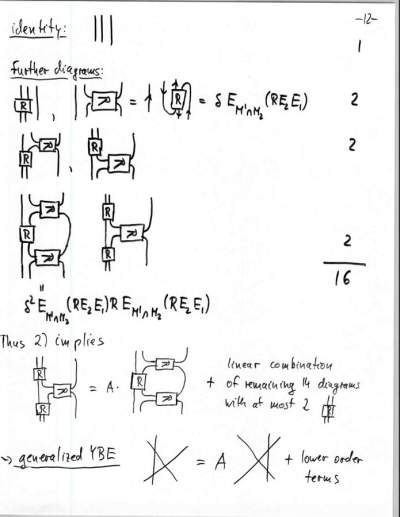 -12-
identity: 1
Further diagrams:
R , R = R = δ E_{M'∩M_2} (RE_2E_1) 2
R R , R R 2
R R R R R R 2
16
=
δ² E_{M'∩M_2} (RE_2E_1) R E_{M'∩M_2} (RE_2E_1)
Thus 2) implies
R R R = A· R R R + linear combination of remaining 14 diagrams with at most 2 R
~> generalized YBE = A + lower order terms